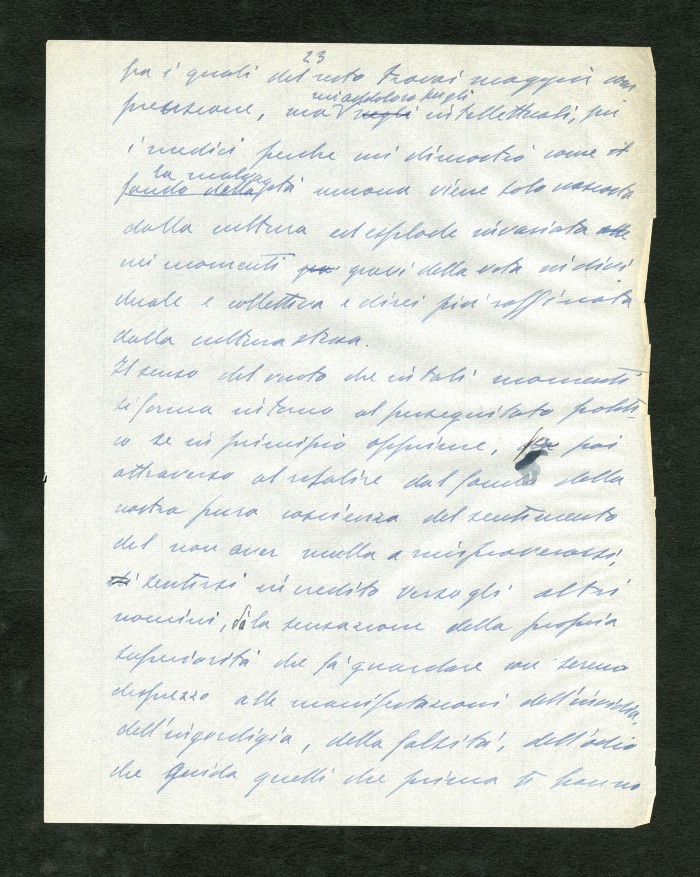 23
fra i quali del resto trovai maggior com
prensione, ma negli intellettuali, fra
mi addolora sugli
i medici perché mi dimostrò come il
la malva
fondo della gità umana viene solo nascosta
dalla cultura ed esplode invariata
nei momenti gravi della vita indivi
duale e collettiva e direi più raffinata
dalla cultura stessa.
Il senso del vuoto che in tali momenti
si forma intorno al perseguitato politi-
co se in principio opprime, poi
attraverso al risalire dal fondo della
nostra pura coscienza del sentimento
del non aver nulla a rimproverarsi,
di sentirsi in credito verso gli altri
uomini, dà la sensazione della propria
superiorità che fa guardare con sereno
disprezzo alle manifestazioni dell'invidia,
dell'ingordigia, della falsità, dell'odio
che guida quelli che prima ti hanno